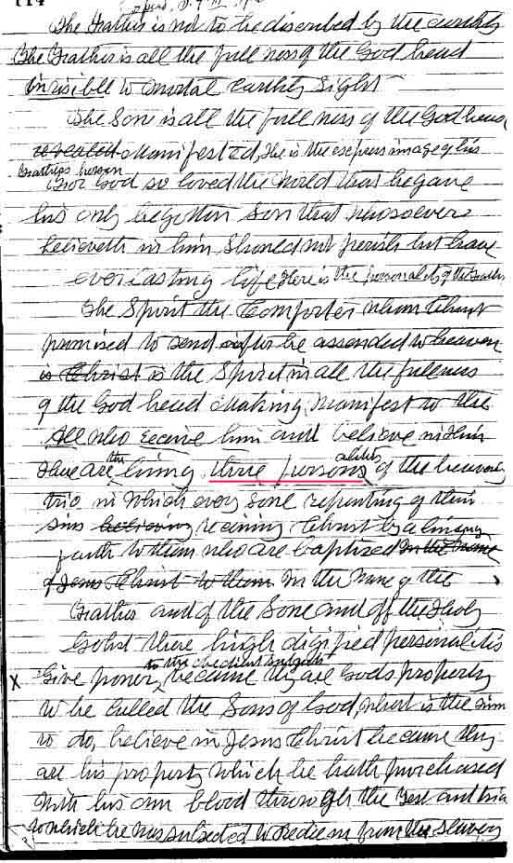 The Father is not to be discribed by the earthly
The Father is all the full ness of the God head
invisible to mortal earthly sight
The Sone is all the full ness of the God head
revealed Manifested, He is the express image of his
Fathers person
For God so loved the World that he gave
his only begotten Son that whosoever
believeth in him Should not perish but have
ever lasting life Here is the personality of the Father
The Spirit the Comforter whom Christ
promised to send after he assended to heaven
is Christ is the Spirit in all the fullness
of the God head Making Manifest to the
All who receive him and believe in Him
Here are the living three persons alities of the heavenly
trio in which every sone repenting of their
sins believing receiving Christ by a living
faith to them who are baptized in the name
of Jesus Christ to them In the Name of the
Father and of the Sone and off the Holy
Gohst these high digified personalitis
to the obedient
X Give power, because they are Gods property
to be called the Sons of God, what is the
to do, believe in Jesus Christ because they
are his property which he hath purchased
with his own blood through the test and
to which he was to redeem from the Slavery